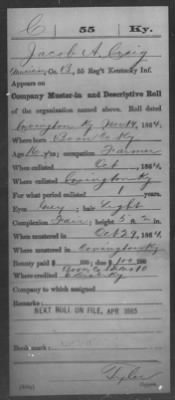 C | 55 | Ky.
Jacob A. Craig
Co. B, 55 Reg't Kentucky Inf.
Appears on
Company Muster-in and Descriptive Roll
of the organization named above. Roll dated
Covington Ky Nov 14, 1864.
Where born Boone Co Ky
Age y'rs; occupation Farmer
When enlisted Oct , 1864.
Where enlisted Covington Ky
For what period enlisted 1 years.
Eyes Grey; hair Light
Complexion Fair; height 5 ft. 2 in.
When mustered in Oct 29, 1864.
Where mustered in Covington Ky
Bounty paid $ 100; due $ 100
Where credited
Company to which assigned
Remarks:
NEXT ROLL ON FILE, APR 1865
Book mark:
Tyler
Copyist.